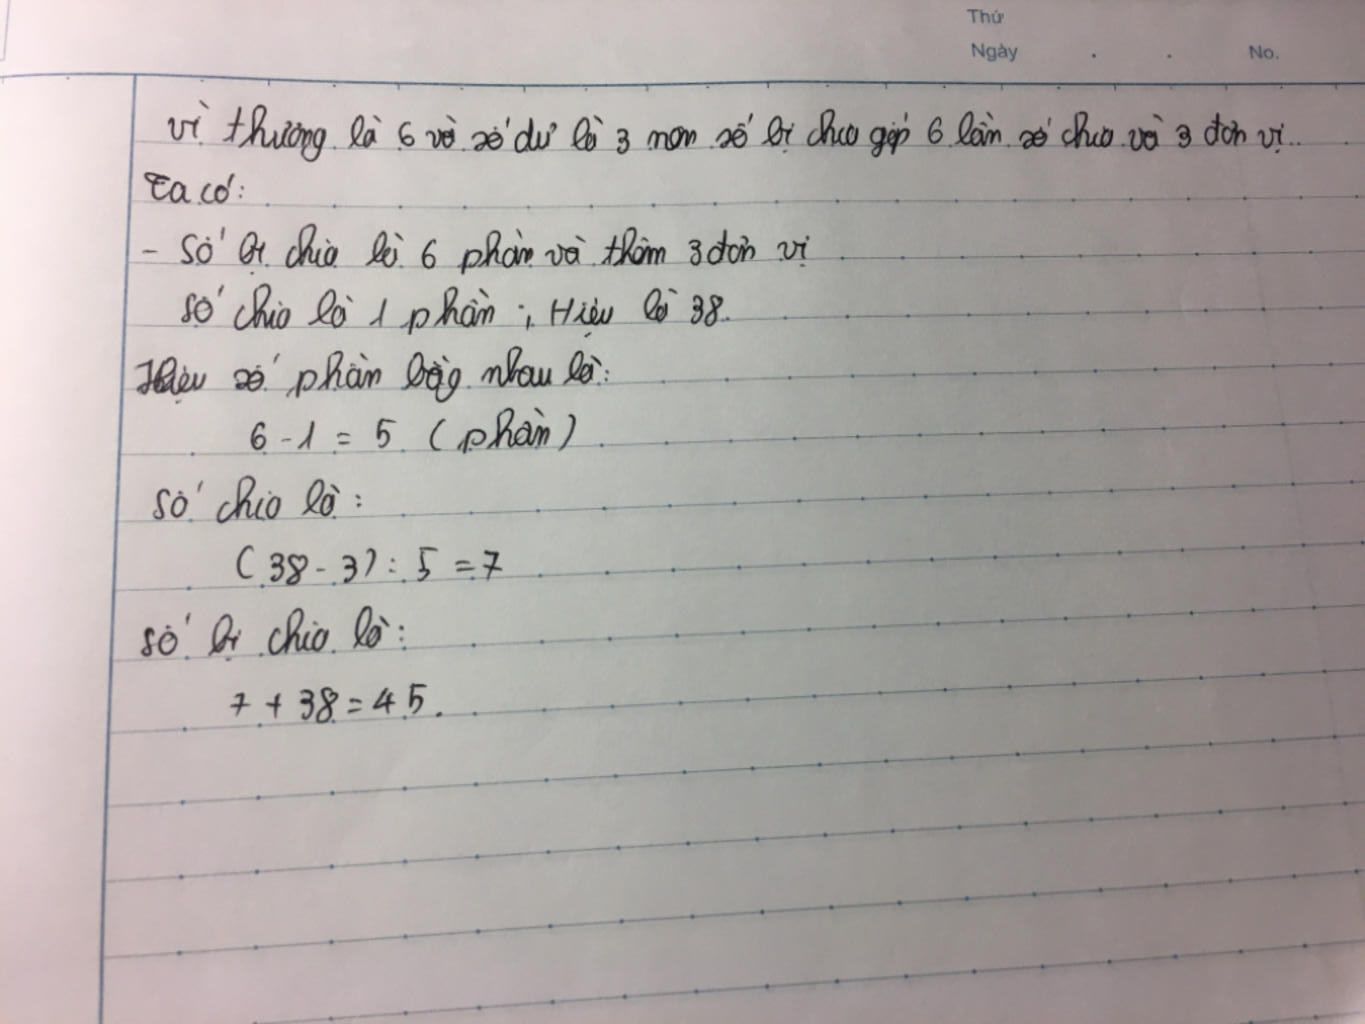 Thứ
Ngày . . No.
vì thương là 6 và số dư là 3 nên số bị chia gấp 6 lần số chia và 3 đơn vị.
Ta có:
- Số bị chia là 6 phần và thêm 3 đơn vị
số chia là 1 phần ; Hiệu là 38.
Hiệu số phần bằg nhau là:
6 - 1 = 5 (phần)
số chia là :
(38 - 3) : 5 = 7
số bị chia là:
7 + 38 = 45.